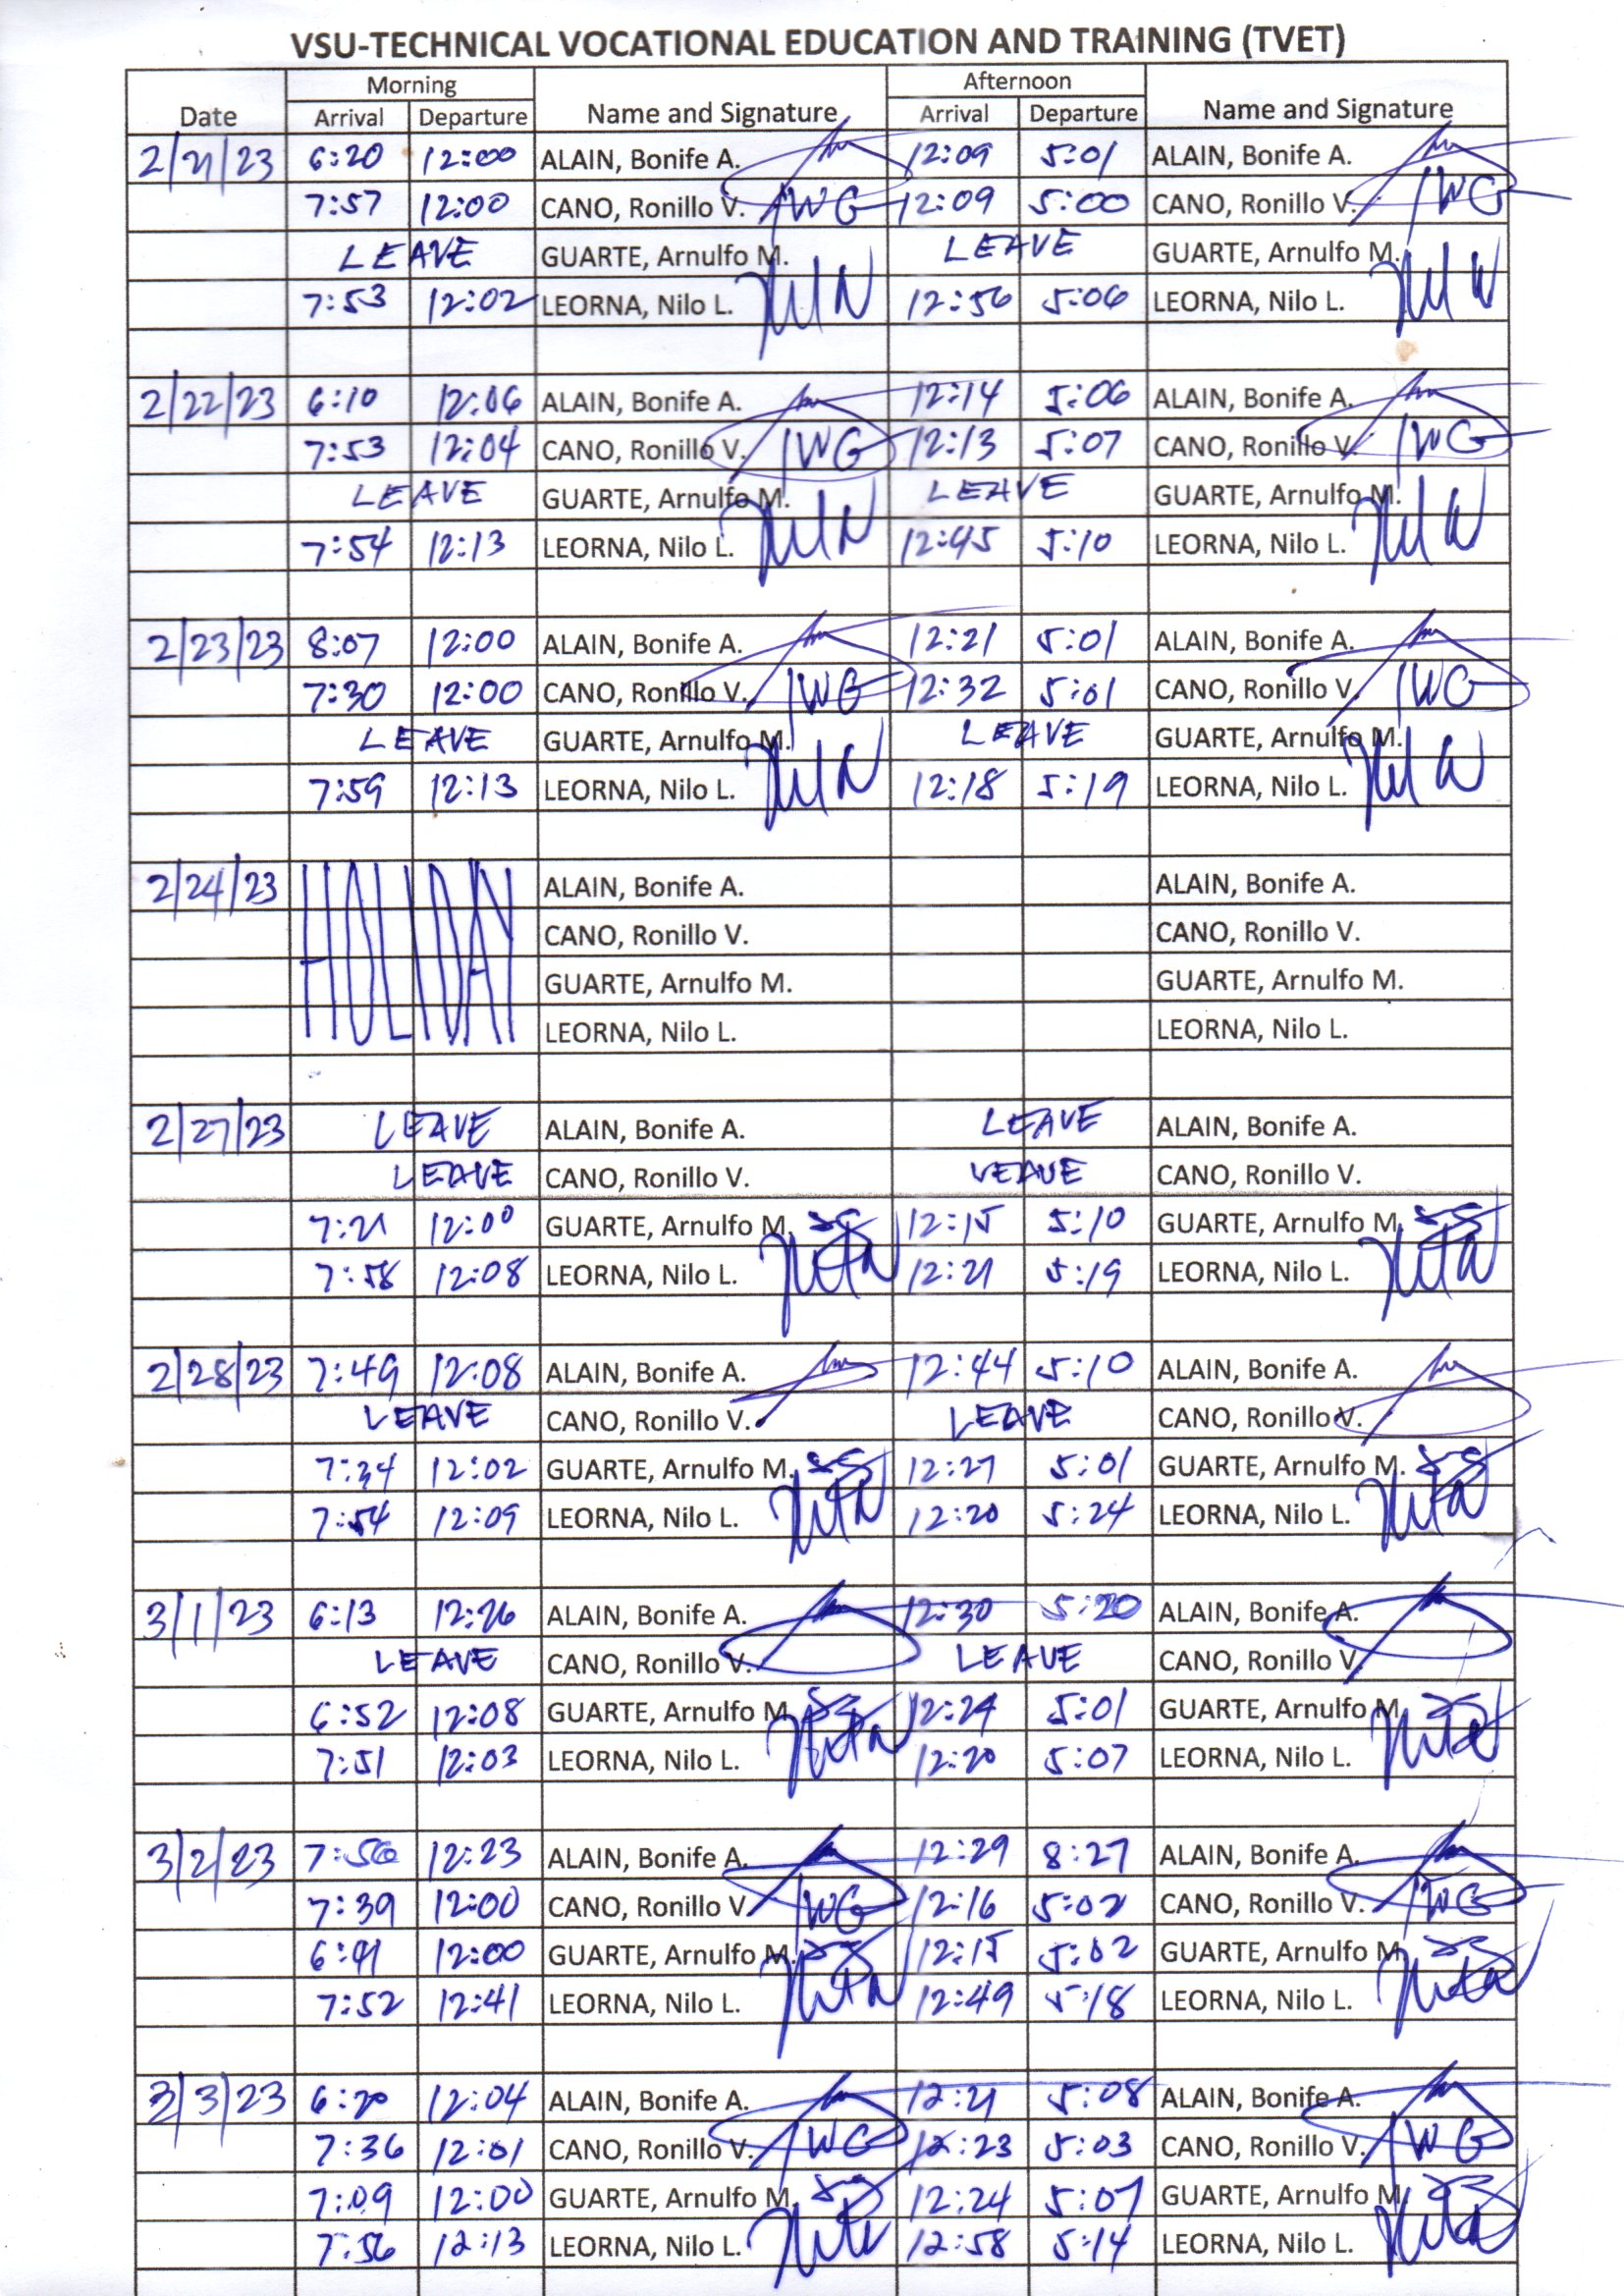 VSU-TECHNICAL VOCATIONAL EDUCATION AND TRAINING (TVET)
Morning Afternoon
Date Arrival Departure Name and Signature Arrival Departure Name and Signature
2/21/23 6:20 12:00 ALAIN, Bonife A. 12:09 5:01 ALAIN, Bonife A.
7:57 12:00 CANO, Ronillo V. 12:09 5:00 CANO, Ronillo V.
LEAVE GUARTE, Arnulfo M. LEAVE GUARTE, Arnulfo M.
7:53 12:02 LEORNA, Nilo L. 12:56 5:06 LEORNA, Nilo L.
2/22/23 6:10 12:06 ALAIN, Bonife A. 12:14 5:06 ALAIN, Bonife A.
7:53 12:04 CANO, Ronillo V. 12:13 5:07 CANO, Ronillo V.
LEAVE GUARTE, Arnulfo M. LEAVE GUARTE, Arnulfo M.
7:54 12:13 LEORNA, Nilo L. 12:45 5:10 LEORNA, Nilo L.
2/23/23 8:07 12:00 ALAIN, Bonife A. 12:21 5:01 ALAIN, Bonife A.
7:30 12:00 CANO, Ronillo V. 12:32 5:01 CANO, Ronillo V.
LEAVE GUARTE, Arnulfo M. LEAVE GUARTE, Arnulfo M.
7:59 12:13 LEORNA, Nilo L. 12:18 5:19 LEORNA, Nilo L.
2/24/23 HOLIDAY ALAIN, Bonife A. ALAIN, Bonife A.
CANO, Ronillo V. CANO, Ronillo V.
GUARTE, Arnulfo M. GUARTE, Arnulfo M.
LEORNA, Nilo L. LEORNA, Nilo L.
2/27/23 LEAVE ALAIN, Bonife A. LEAVE ALAIN, Bonife A.
LEAVE CANO, Ronillo V. LEAVE CANO, Ronillo V.
7:21 12:00 GUARTE, Arnulfo M. 12:15 5:10 GUARTE, Arnulfo M.
7:58 12:08 LEORNA, Nilo L. 12:21 5:19 LEORNA, Nilo L.
2/28/23 7:49 12:08 ALAIN, Bonife A. 12:44 5:10 ALAIN, Bonife A.
LEAVE CANO, Ronillo V. LEAVE CANO, Ronillo V.
7:34 12:02 GUARTE, Arnulfo M. 12:27 5:01 GUARTE, Arnulfo M.
7:54 12:09 LEORNA, Nilo L. 12:20 5:24 LEORNA, Nilo L.
3/1/23 6:13 12:26 ALAIN, Bonife A. 12:30 5:20 ALAIN, Bonife A.
LEAVE CANO, Ronillo V. LEAVE CANO, Ronillo V.
6:52 12:08 GUARTE, Arnulfo M. 12:24 5:01 GUARTE, Arnulfo M.
7:51 12:03 LEORNA, Nilo L. 12:20 5:07 LEORNA, Nilo L.
3/2/23 7:56 12:23 ALAIN, Bonife A. 12:29 8:27 ALAIN, Bonife A.
7:39 12:00 CANO, Ronillo V. 12:16 5:02 CANO, Ronillo V.
6:41 12:00 GUARTE, Arnulfo M. 12:15 5:02 GUARTE, Arnulfo M.
7:52 12:41 LEORNA, Nilo L. 12:49 5:18 LEORNA, Nilo L.
3/3/23 6:20 12:04 ALAIN, Bonife A. 12:21 5:08 ALAIN, Bonife A.
7:36 12:01 CANO, Ronillo V. 12:23 5:03 CANO, Ronillo V.
7:09 12:00 GUARTE, Arnulfo M. 12:24 5:07 GUARTE, Arnulfo M.
7:56 12:13 LEORNA, Nilo L. 12:58 5:14 LEORNA, Nilo L.